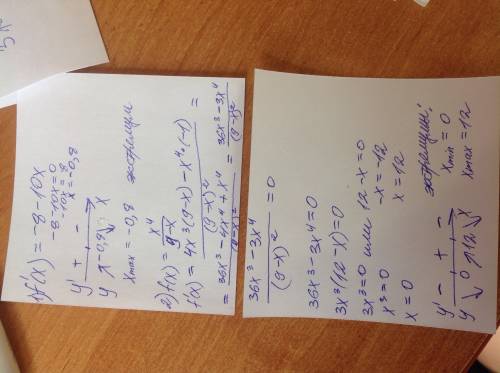 1) f'(x) = -8-10x
-8-10x=0
-10x=8
x=-0,8
y' + -
y -0,8 x
xmax = -0,8 экстремум
2) f(x) = x⁴/(9-x)
f(x) = (4x³(9-x) - x⁴·(-1))/(9-x)² =
= (36x³-4x⁴+x⁴)/(9-x)² = (36x³-3x⁴)/(9-x)²
(36x³-3x⁴)/(9-x)² = 0
36x³-3x⁴=0
3x³(12-x)=0
3x³=0 или 12-x=0
x³=0 -x=12
x=0 x=12
y' - + -
y 0 12 x
экстремум:
xmin = 0
xmax = 12